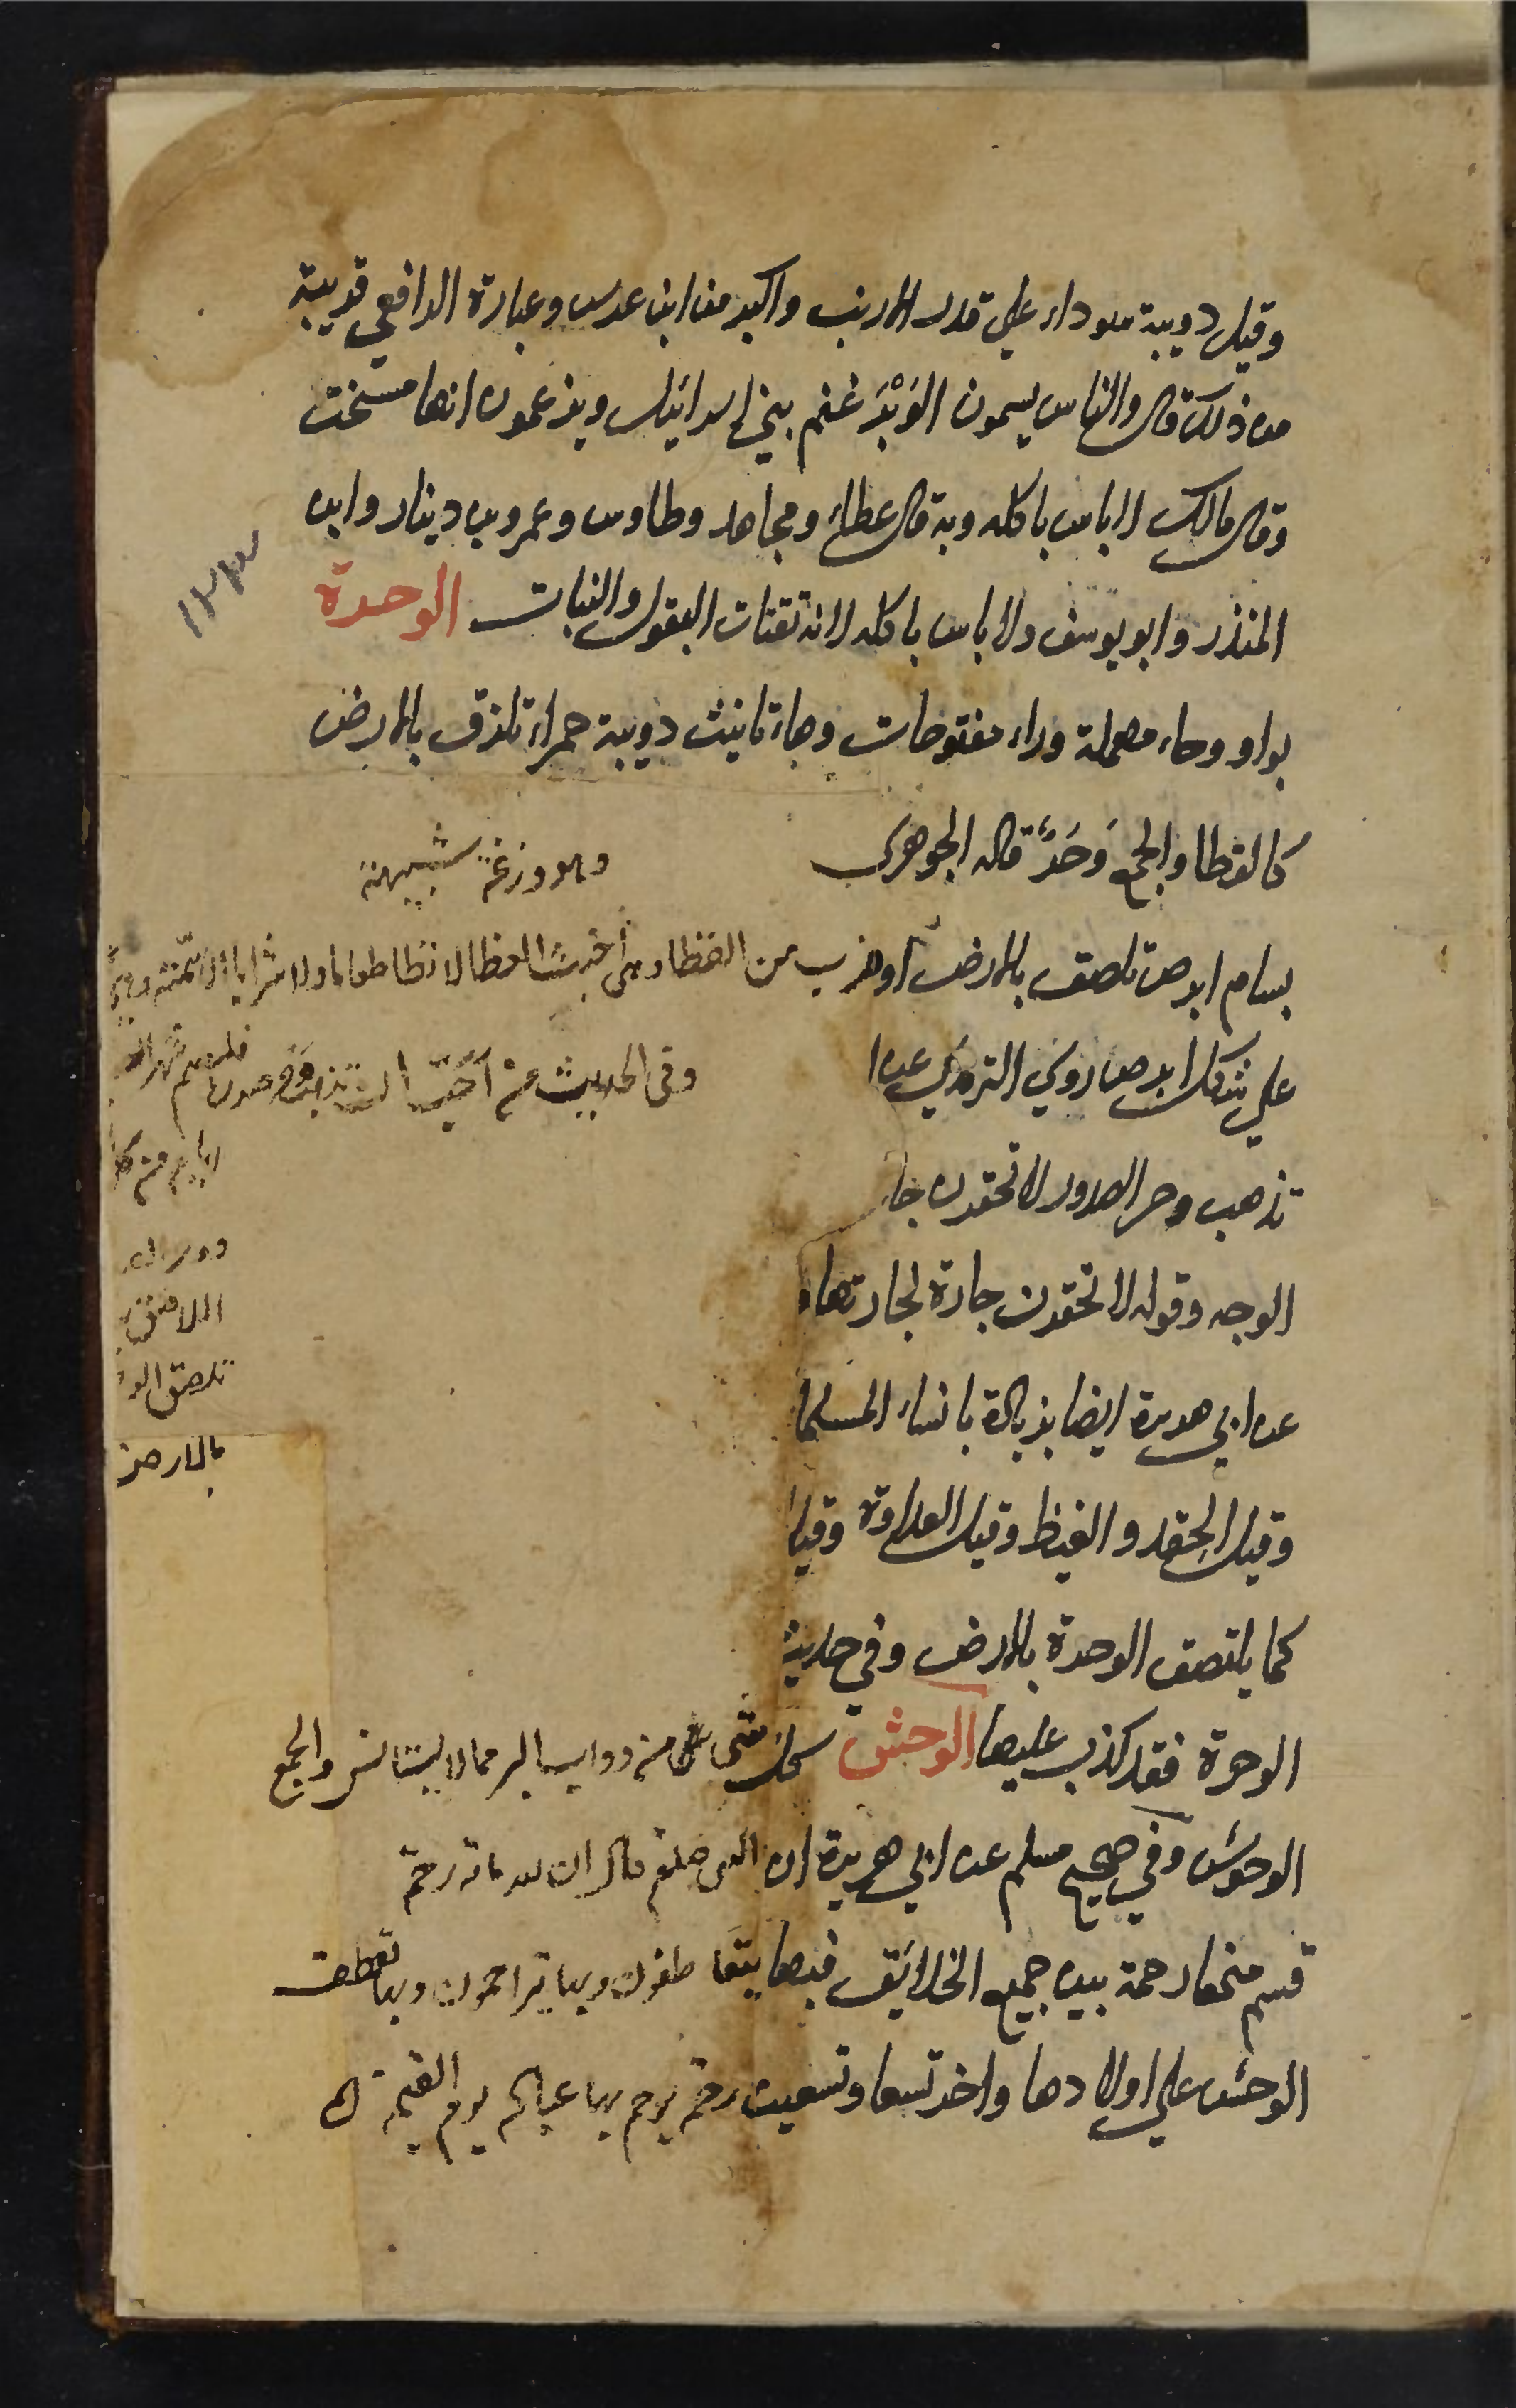 وقيل دويبة سوداء علي قدر الارنب واكبر من ابن عرس وعبارة الرافعي قريبة
من ذلك قال والناس يسمون الوَبْرَ غنم بني اسرائيل ويزعمون انها مسخت
وقال مالك لا باس باكله وبه قال عطاء ومجاهد وطاوس وعمرو بن دينار وابن
المنذر وابو يوسف ولا باس باكله لانه تقتات البقول والنبات الوحرة
بواو وحاء مهملة وراء مفتوحات وهاء تانيث دويبة حمراء تلزق بالارض
كالعظا والجمع وَحَرٌ قاله الجوهري
وهو وزغة شبيهة
بسام ابرص تلصق بالارض او ضرب من العظا وهي اخبث العظا لا تطا طعاما ولا شرابا الا سمته
علي شكل سام ابرص روي الترمذي عن ا
وفي الحديث من احب ان يذهب وحر صدره فليصم شهر
تذهب وحر الصدور لا تحقرن جا
ايام من كل
الوجه وقوله لا تحقرن جارة لجارتها
عن ابي هريرة ايضا بزيادة يا نساء المسلما
تلصق الو
وقيل الحقد والغيظ وقيل العداوة وقيل
بالارض
كما يلتصق الوحرة بالارض وفي حديث
الوحرة فقد كذب عليها الوحش كل شي من دواب البر مما لا يستانس والجمع
الوحوش وفي صحيح مسلم عن ابي هريرة ان النبي صلعم قال ان لله مائة رحمة
قسم منها رحمة بين جميع الخلائق فبها يتعاطفون وبها يتراحمون وبها تعطف
الوحش علي اولادها واخر تسعا وتسعين رحمة يرحم بها عباده يوم القيمة
١٢٣